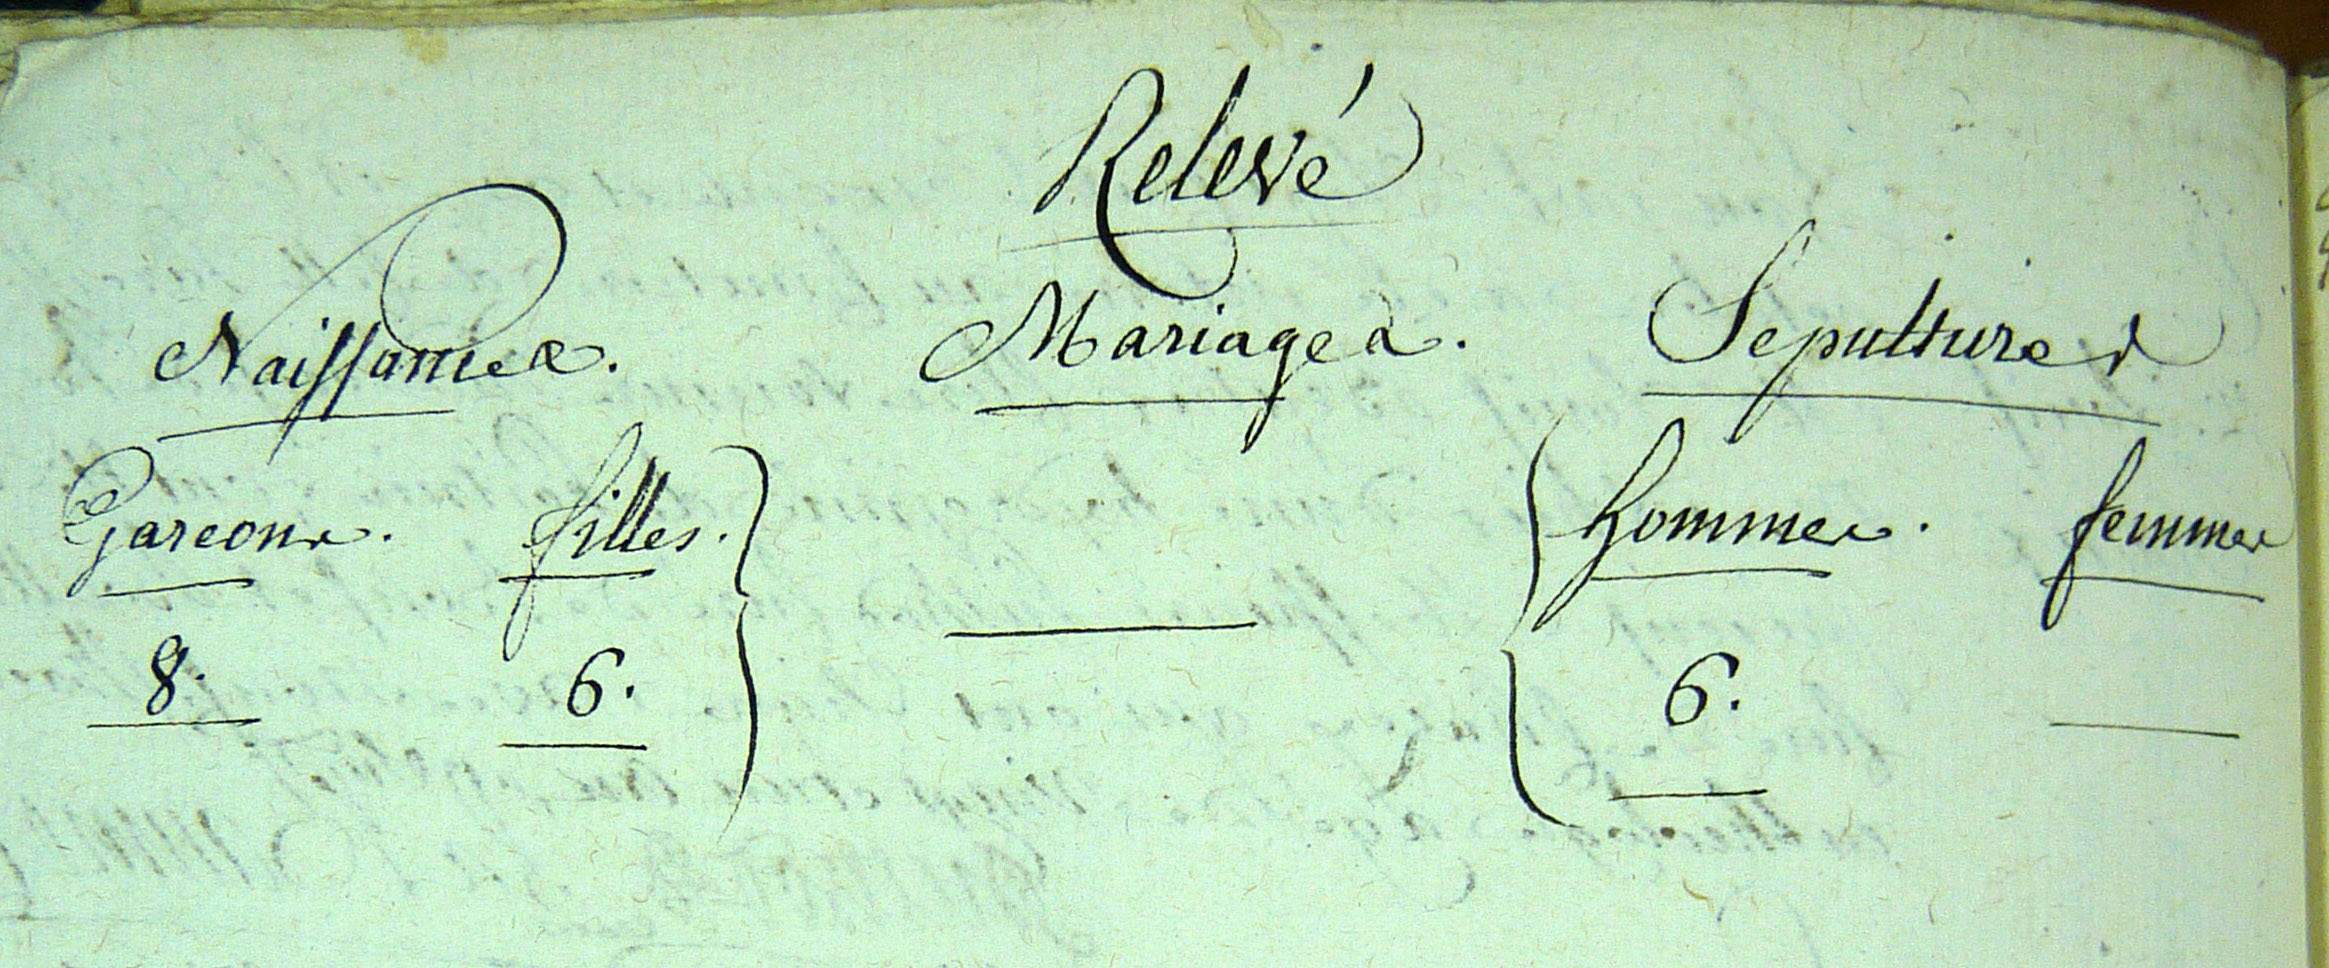 Relevé
Naissances. Mariages. Sepultures
Garcons. filles. hommes. femmes
8. 6. 6.